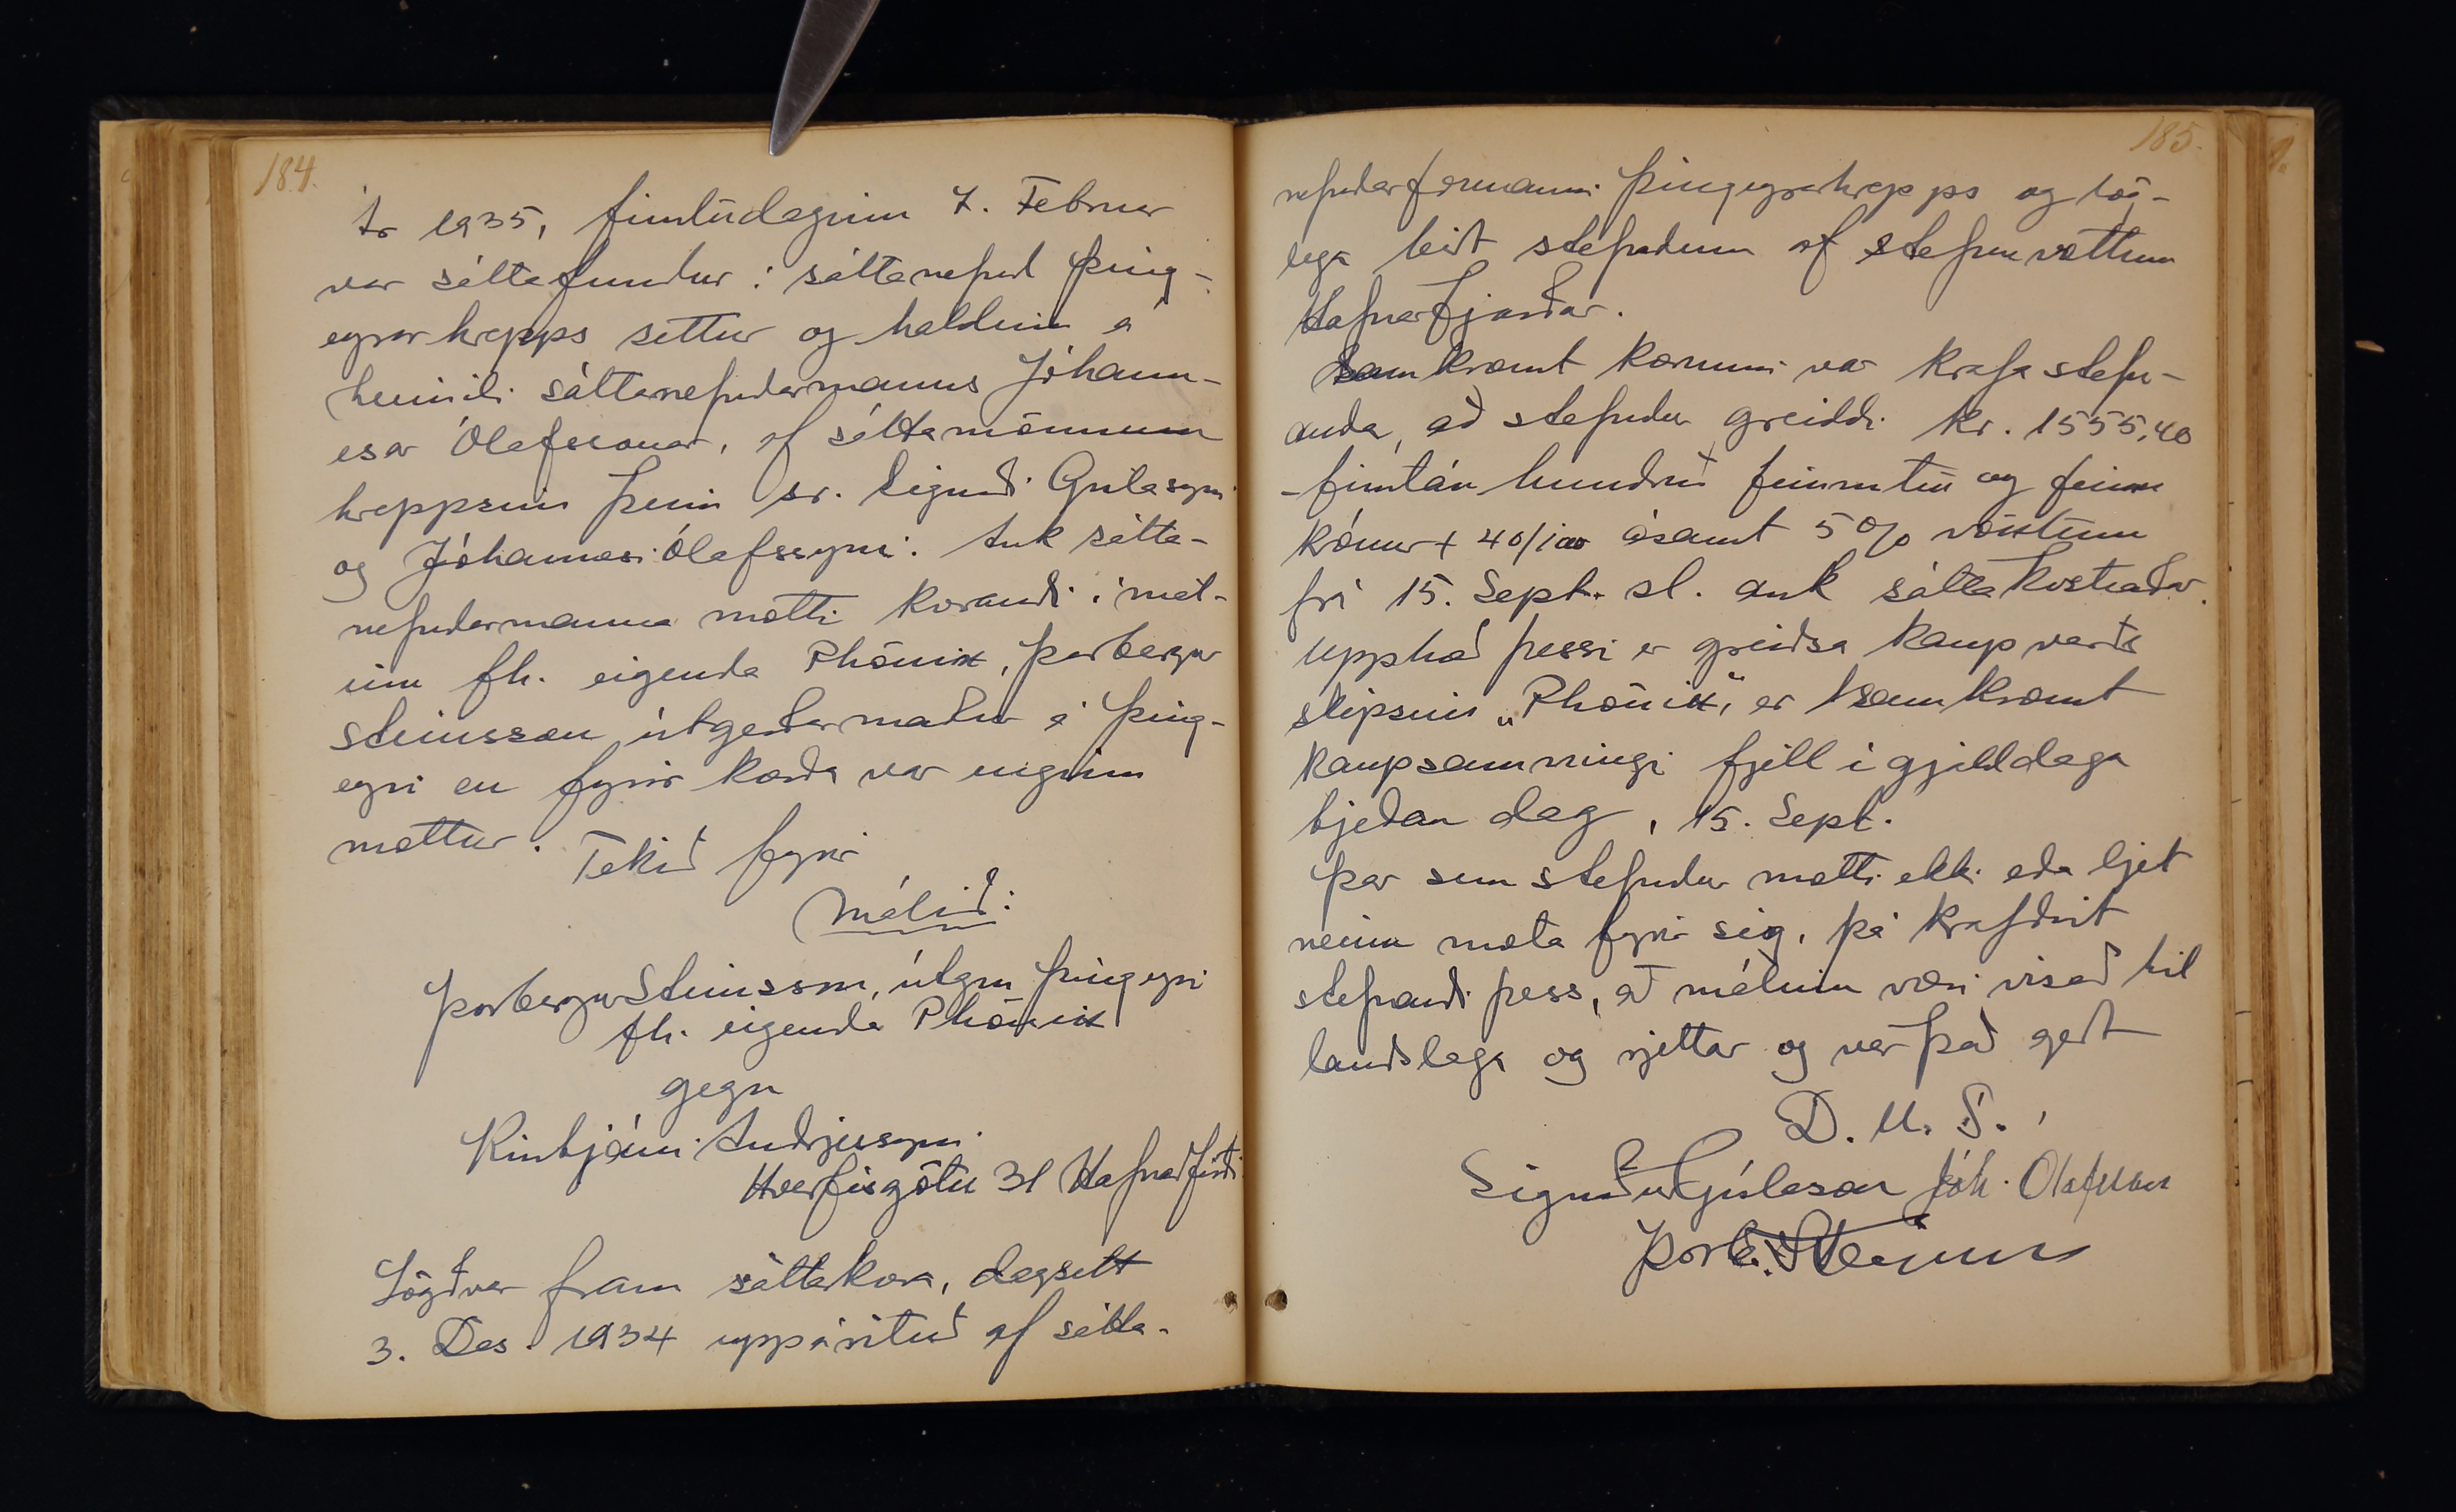 184.
Ár 1935, fimtudaginn 7. Februar
var sáttafundur í sáttanefnd Þing-
eyrarhrepps settur og haldinn á
heimili sáttanefndarmanns Jóhann-
esar Ólafssonar, af sáttamönnum
hreppsins þeim sr. Sigurði Gíslasyni
og Jóhannesi Ólafssyni. Auk sátta-
nefndarmanna mætti kærandi í mál-
inu fh. eigenda Phönix, Þorbergur
Steinsson útgerðarmaður á Þing-
eyri en fyrir kærða var enginn
mættur. Tekið fyrir
Málið:
Þorbergur Steinsson, útgm Þingeyri
fh. eigenda Phönix
gegn
Kristjáni Andrjessyni
Hverfisgötu 31 Hafnarfirði
Lögð var fram sáttakæra, dagsett
3. Des. 1934 uppárituð af sátta-
185.
nefndarformanni Þingeyrarhrepps og lög-
lega birt stefndum af stefnuvottum
Hafnarfjarðar.
Samkvæmt kærunni var krafa stefn-
anda, að stefndur greiddi kr. 1555,40
-fimtán hundruð fimmtíu og fimm
krónur + 40/100 ásamt 5% vöxtum
frá 15. Sept. sl. auk sáttakostnaðar.
Upphæð þessi er greiðsla kaupverðs
skipsins „Phönix“, er samkvæmt
kaupsamningi fjell í gjalddaga
tjeðan dag, 15. Sept.
Þar sem stefndur mætti ekki eða ljet
neinn mæta fyrir sig, þá krafðist
stefnandi þess, að málinu væri vísað til
landslaga og rjettar og var það gert
D. U. S.
Sigurður Gíslason Jóh. Ólafsson
Þorb. Steinsson